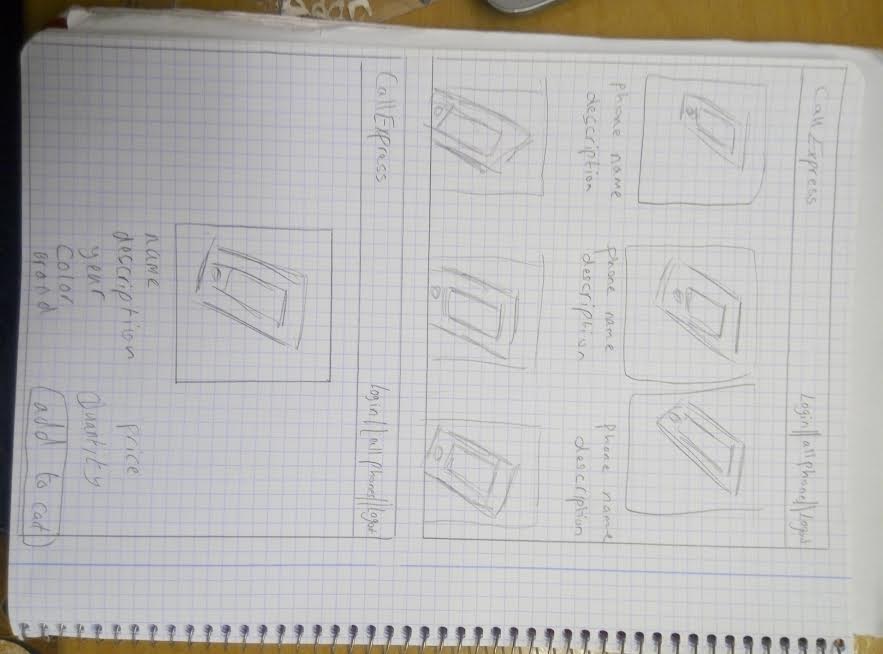 Call Express
Login||all phone||Logout
phone name
description
phone name
description
phone name
description
Call Express
login||all phone||logout
name
description
year
color
brand
price
Quantity
add to cat